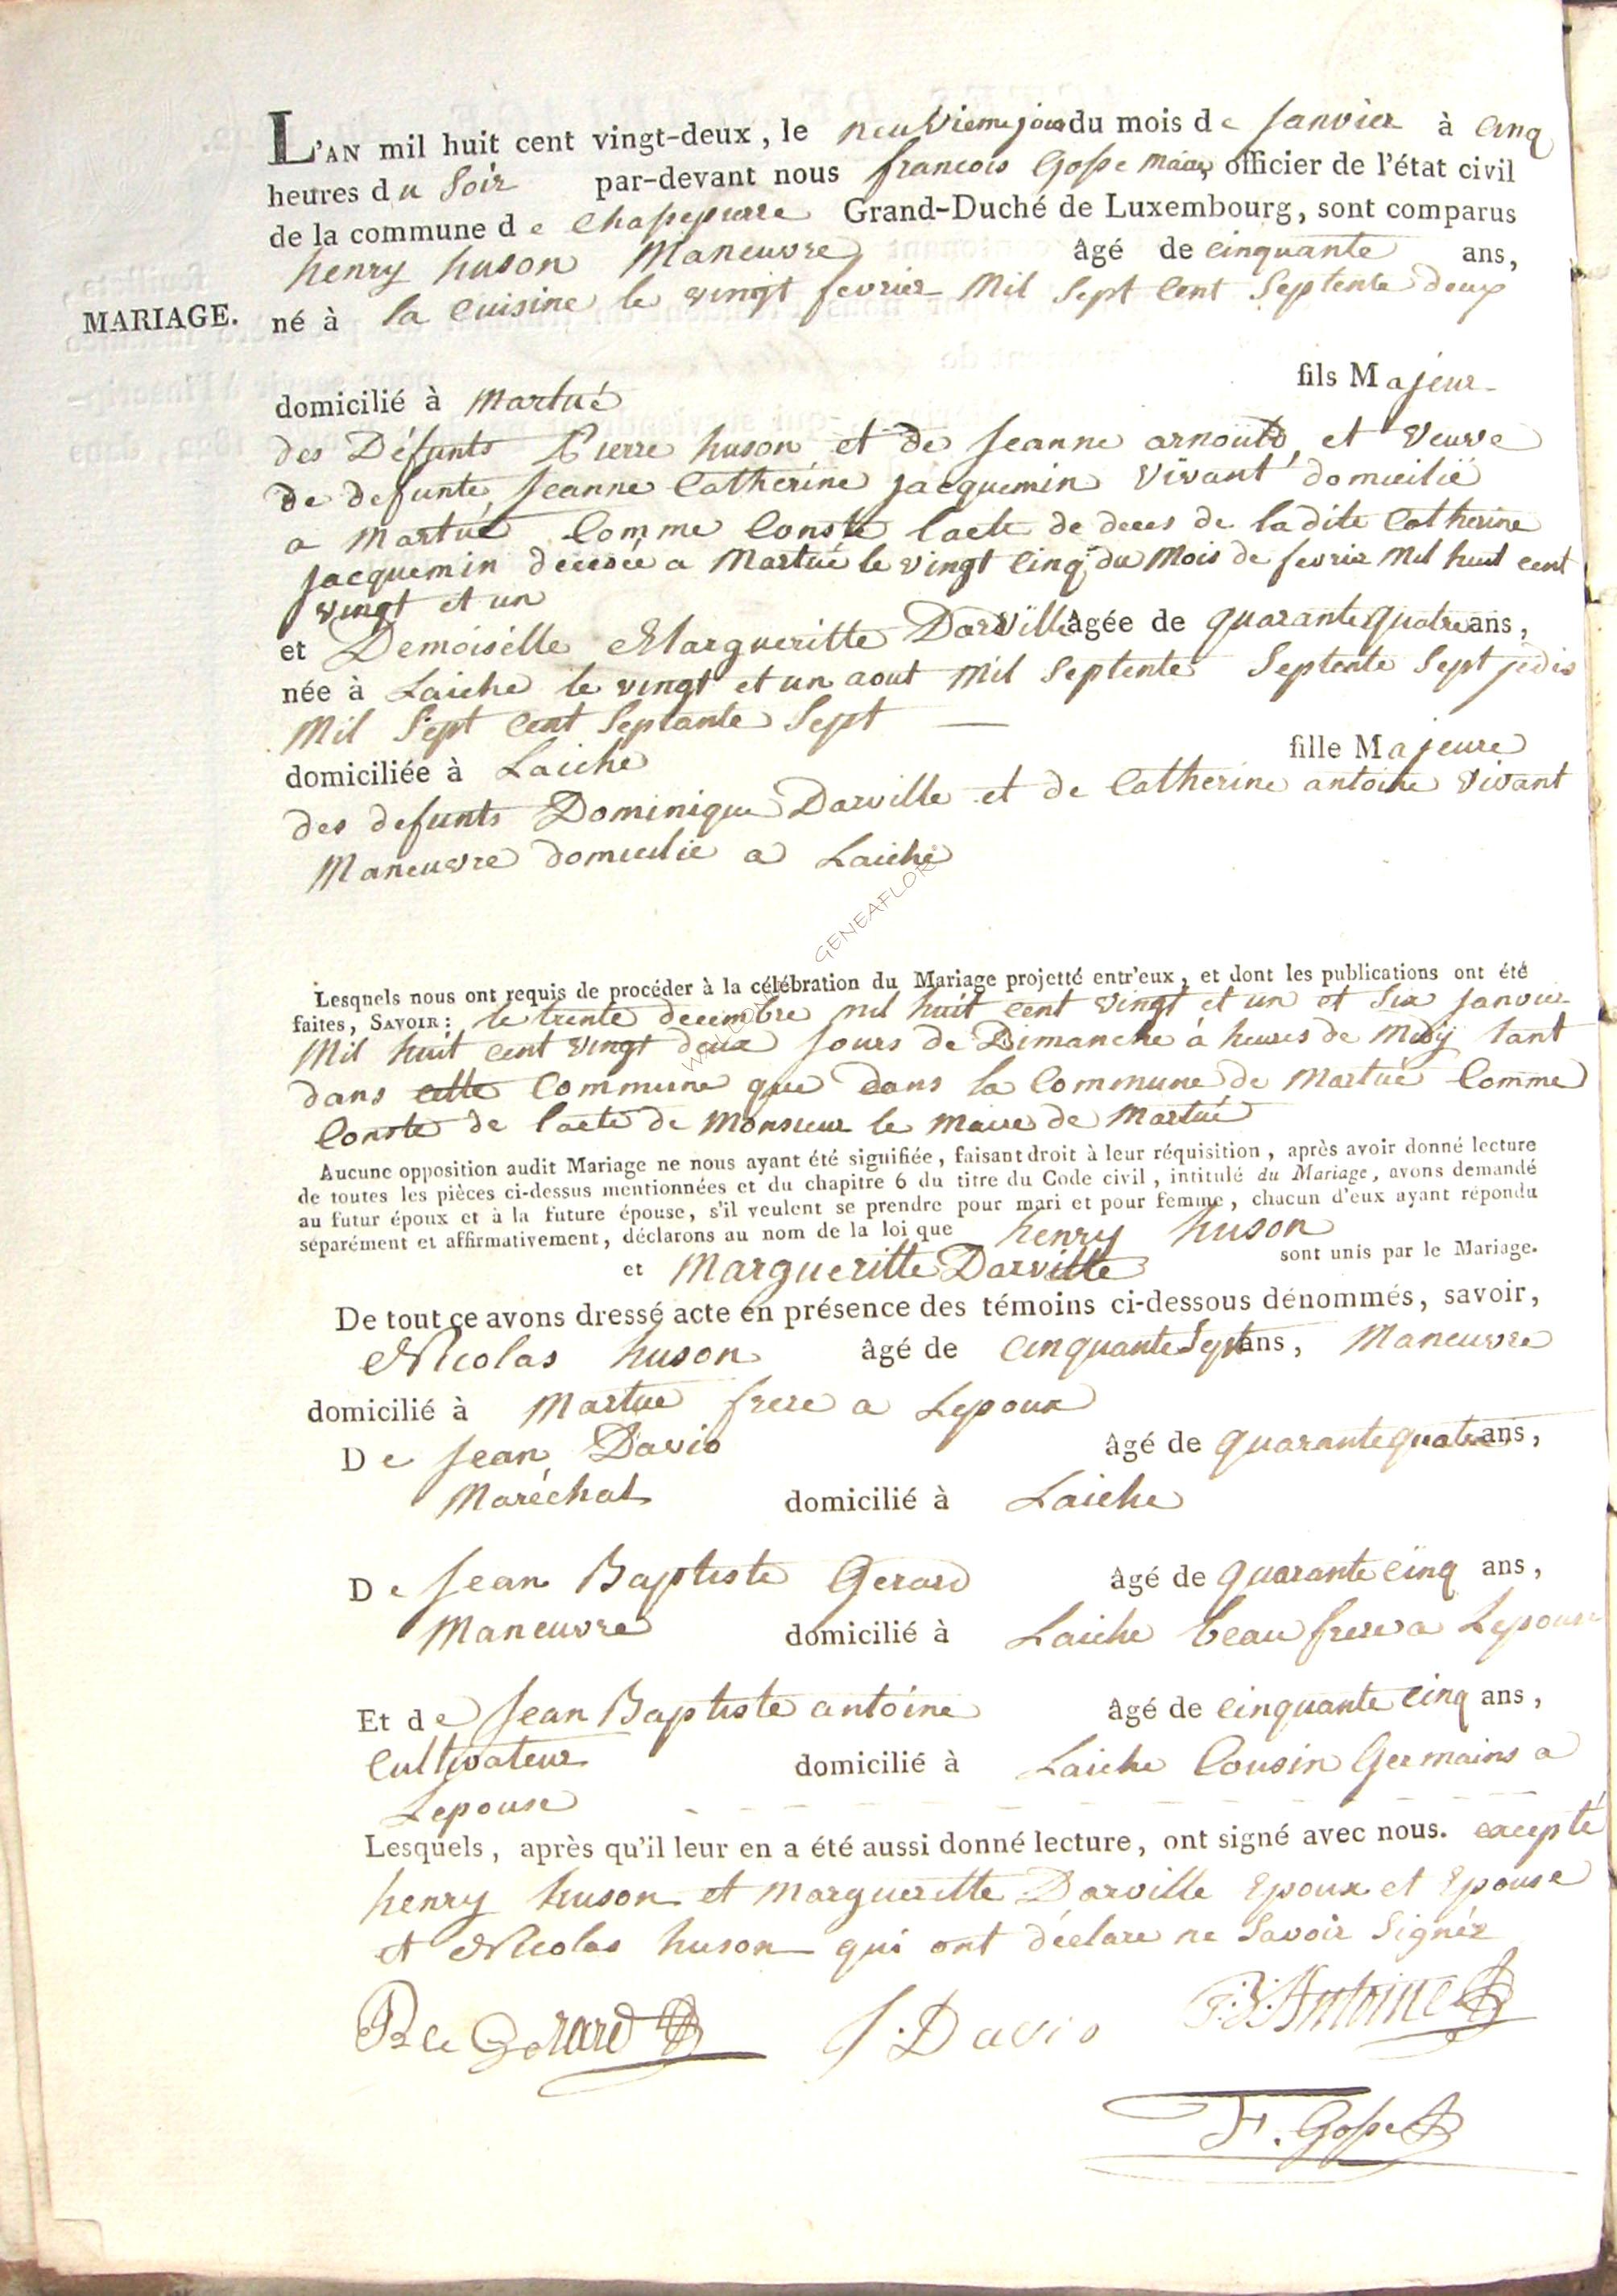 L'AN mil huit cent vingt-deux, le neuvieme jour du mois de Janvier à cinq
heures du Soir par-devant nous francois Gosse maire officier de l'état civil
de la commune de Chassepierre Grand-Duché de Luxembourg, sont comparus
henry huson Maneuvre âgé de cinquante ans,
MARIAGE.
né à la cuisine le vingt fevrier Mil Sept Cent Septente deux
fils Majeur
domicilié à Martué
des Défunts Pierre huson et de Jeanne arnould et veuve
de defunte Jeanne Catherine jacquemin vivant domicilié
a Martué Comme Conste lacte de deces de ladite Catherine
jacquemin décedée a Martué le vingt Cinq du Mois de fevrier Mil huit cent
vingt et un
et Demoiselle Margueritte Darville âgée de quarante quatre ans,
née à Laiche le vingt et un aout Mil Septente Septente Sept je dis
Mil Sept Cent Septante Sept
fille Majeure
domiciliée à Laiche
des defunts Dominique Darville et de Catherine antoine vivant
Maneuvre domicilie a Laiche
GENEAFLORE
Lesquels nous ont requis de procéder à la célébration du Mariage projetté entr'eux, et dont les publications ont été
faites, SAVOIR: le trente decembre mil huit cent vingt et un et Six janvier
Mil huit cent vingt deux Jours de Dimanche à heures de Midy tant
dans cette Commune que dans la Commune de Martué Comme
Conste de lacte de Monsieur le Maire de Martué
Aucune opposition audit Mariage ne nous ayant été signifiée, faisant droit à leur réquisition, après avoir donné lecture
de toutes les pièces ci-dessus mentionnées et du chapitre 6 du titre du Code civil, intitulé du Mariage, avons demandé
au futur époux et à la future épouse, s'il veulent se prendre pour mari et pour femme, chacun d'eux ayant répondu
séparément et affirmativement, déclarons au nom de la loi que henry huson
et Margueritte Darville sont unis par le Mariage.
De tout ce avons dressé acte en présence des témoins ci-dessous dénommés, savoir,
Nicolas huson âgé de cinquante Sept ans, Maneuvre
domicilié à Martué frere a Lepoux
De Jean David âgé de quarante quatre ans,
Maréchal domicilié à Laiche
De Jean Baptiste Gerard âgé de quarante cinq ans,
Maneuvre domicilié à Laiche beau frere a Lepouse
Et de Jean Baptiste antoine âgé de cinquante cinq ans,
Cultivateur domicilié à Laiche Cousin Germains a
Lepouse
Lesquels, après qu'il leur en a été aussi donné lecture, ont signé avec nous. excepté
henry huson et margueritte Darville Epoux et Epouse
et Nicolas huson qui ont déclare ne Savoir Signér
Gerard J. David J: B: Antoine
F. Gosse